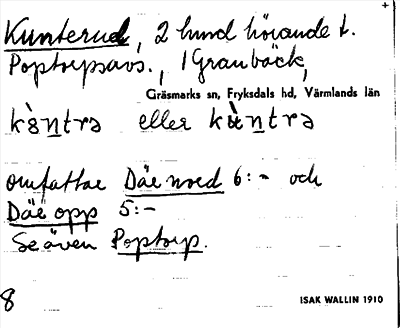 Kunterud, 2 hmd hörande t.
Poptorpsavs., 1 Granbäck,
Gräsmarks sn, Fryksdals hd, Värmlands län
eller
omfattar Däe nord 6:- och
Däe opp 5:-
Se även Poptorp.
8
ISAK WALLIN 1910